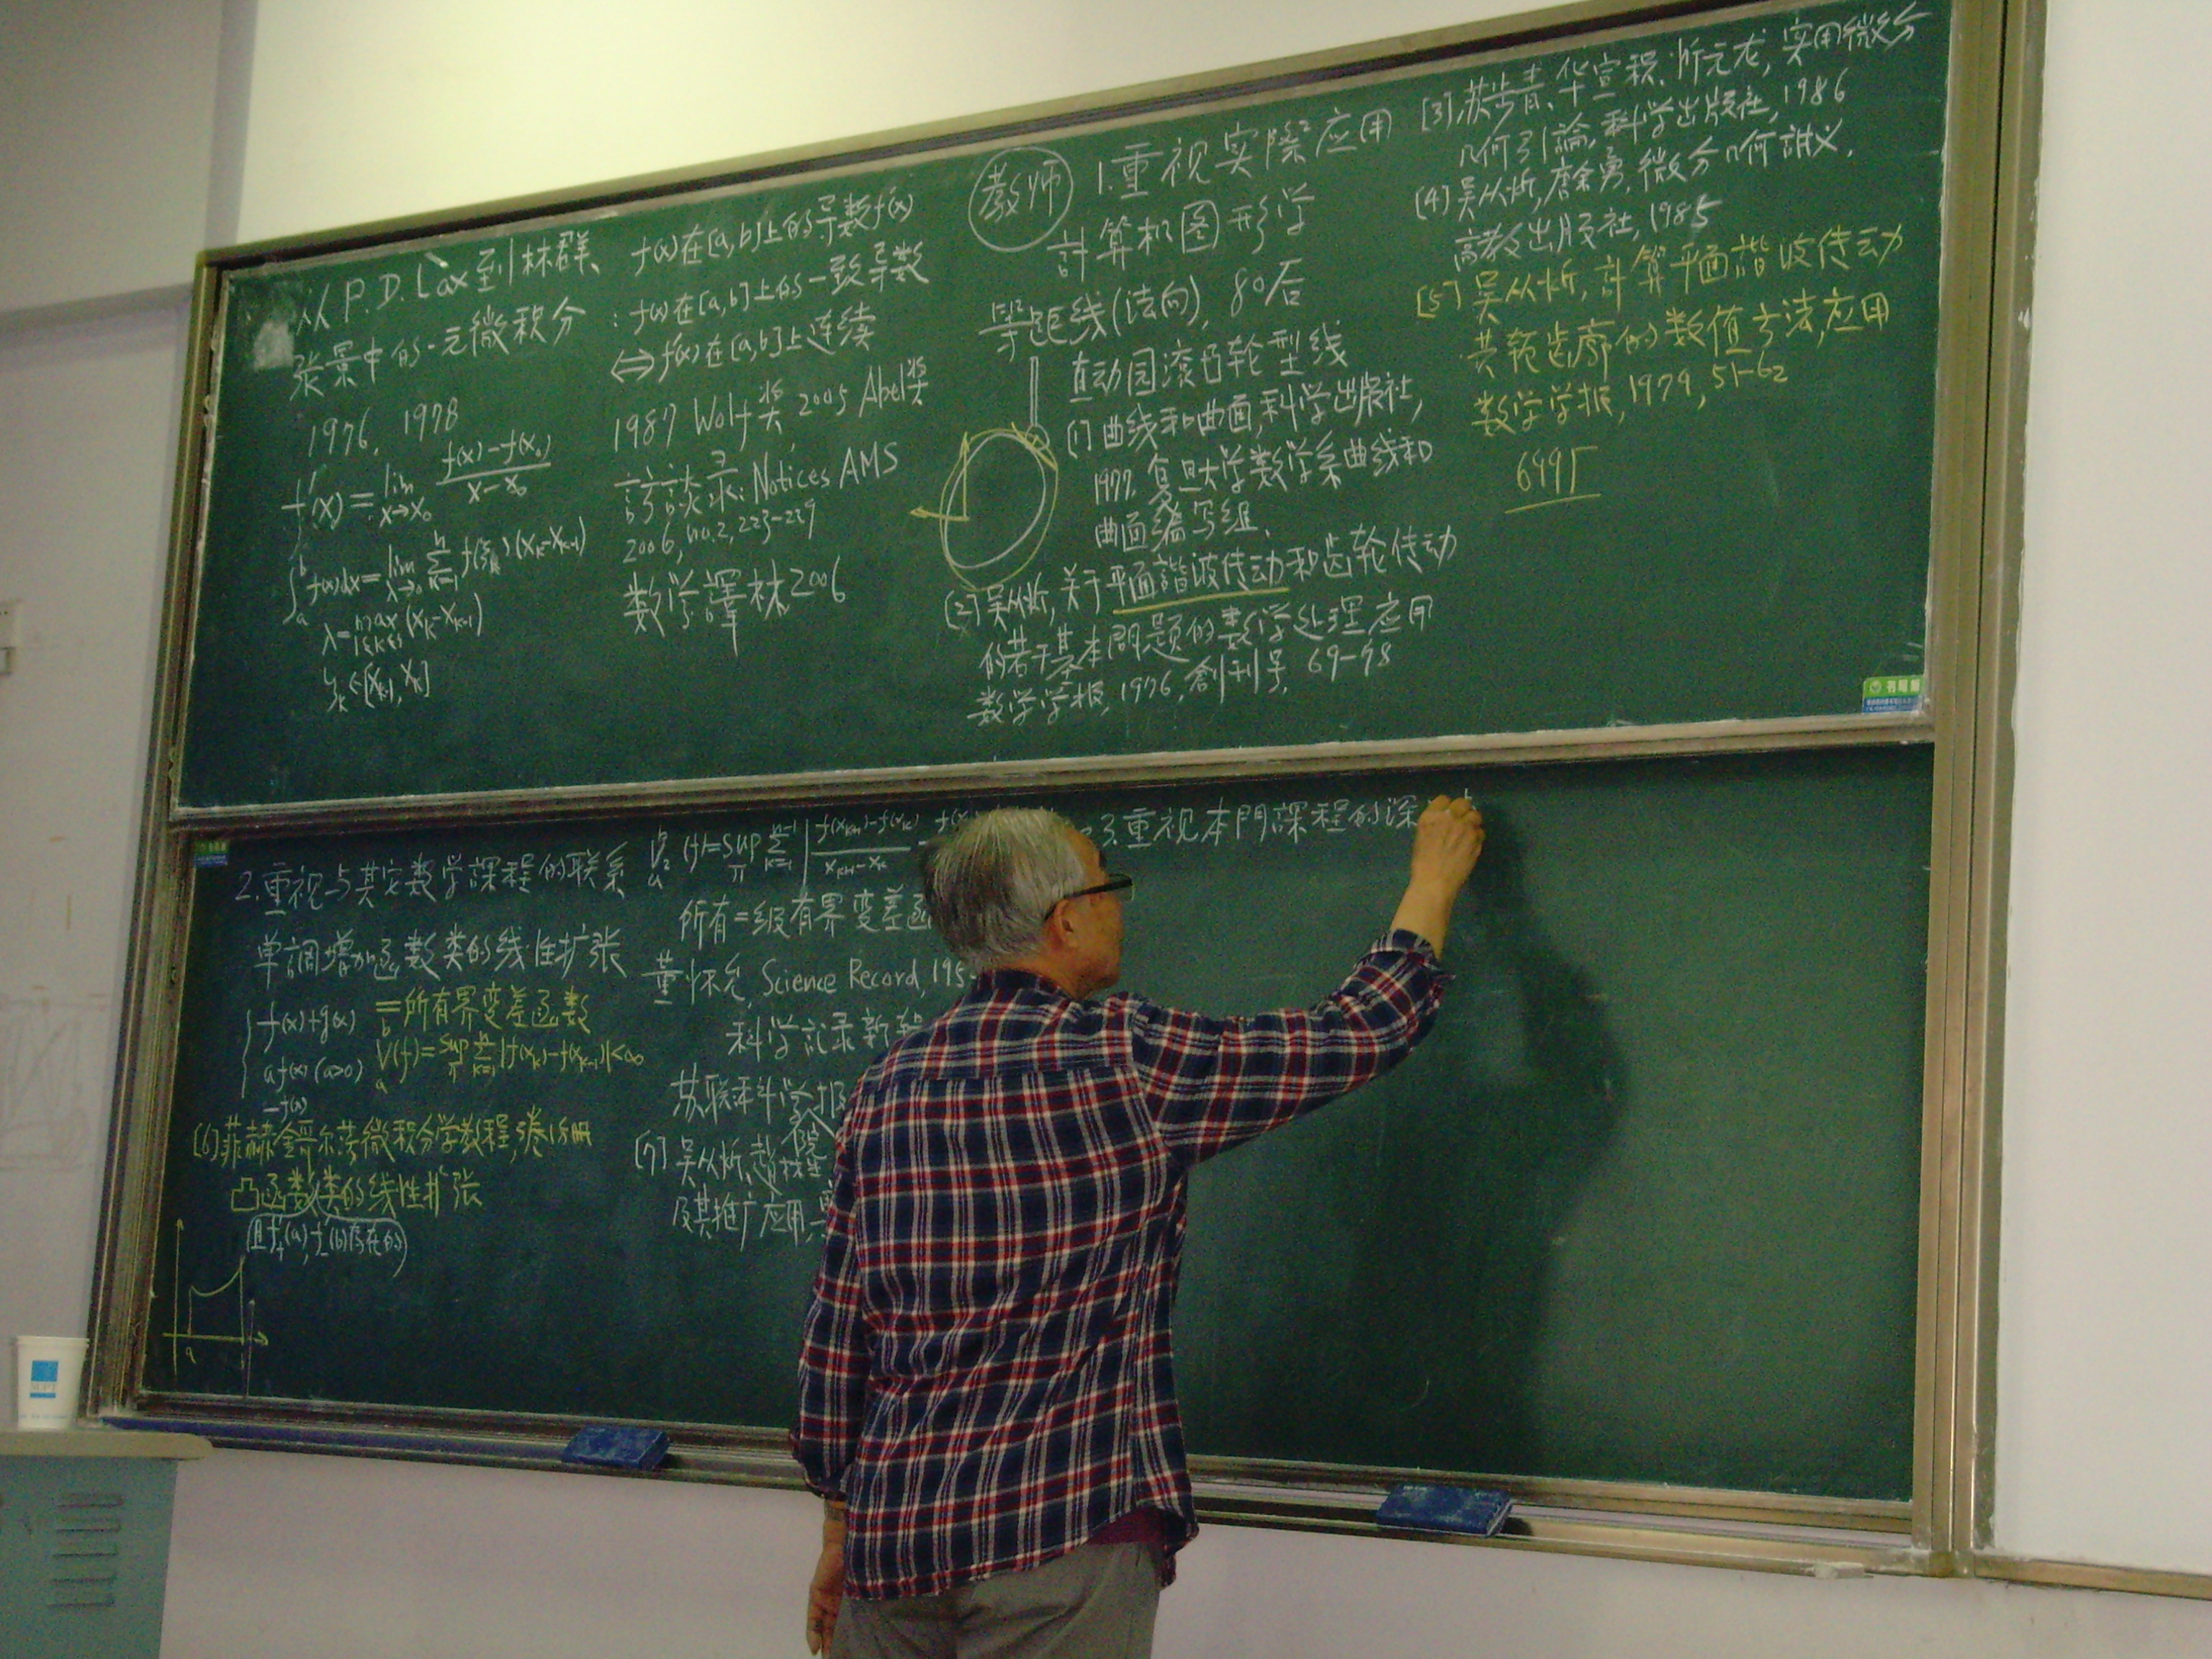 从 P.D. Lax到林群、
张景中的一元微积分
1976, 1978
f'(x) = lim x→x₀ f(x)-f(x₀) / x-x₀
∫ₐᵇ f(x)dx = lim λ→0 Σ k=1 n f(ξₖ)(xₖ-xₖ₋₁)
λ = max 1≤k≤n (xₖ-xₖ₋₁)
ξₖ∈[xₖ₋₁, xₖ]
f(x)在[a,b]上的导数f'(x)
: f(x)在[a,b]上的一致导数
⇔ f'(x)在[a,b]上连续
1987 Wolf奖, 2005 Abel奖
訪談录: Notices AMS
2006, no.2, 223-229
数学譯林2006
教师
1.重视实際应用
計算机图形学
等距线(法向), 80后
直动园滚凸轮型线
[1]曲线和曲面,科学出版社,
1977, 复旦大学数学系曲线和
曲面编写组.
[2]吴从炘,关于平面諧波传动和齿轮传动
的若干基本問题的数学处理应用
数学学报, 1976, 創刊号, 69-98
[3]苏步青、华宣积、忻元龙,实用微分
几何引論,科学出版社, 1986
[4]吴从炘,唐余勇,微分几何講义,
高教出版社, 1985
[5]吴从炘,計算平面諧波传动
共轭齿廓的数值方法,应用
数学学报, 1979, 51-62
2.重视与其它数学課程的联系
单調增加函数类的线性扩张
f(x)+g(x)
af(x) (a>0)
-f(x)
=所有界变差函数
V(f)=sup π Σ k=1 n |f(xₖ)-f(xₖ₋₁)|<∞
[6]菲赫金哥尔茨微积分学教程,3卷1分册
凸函数类的线性扩张
且f'₊(a), f'₋(b)存在的
a
V₂(f)=sup π Σ k=1 n-1 | f(xₖ₊₁)-f(xₖ) / xₖ₊₁-xₖ
所有=级有界变差函
董怀允, Science Record, 195
科学記录新
苏联科学 报
院
[7]吴从炘,赵林生
及其推广应用,
3.重视本門課程的深